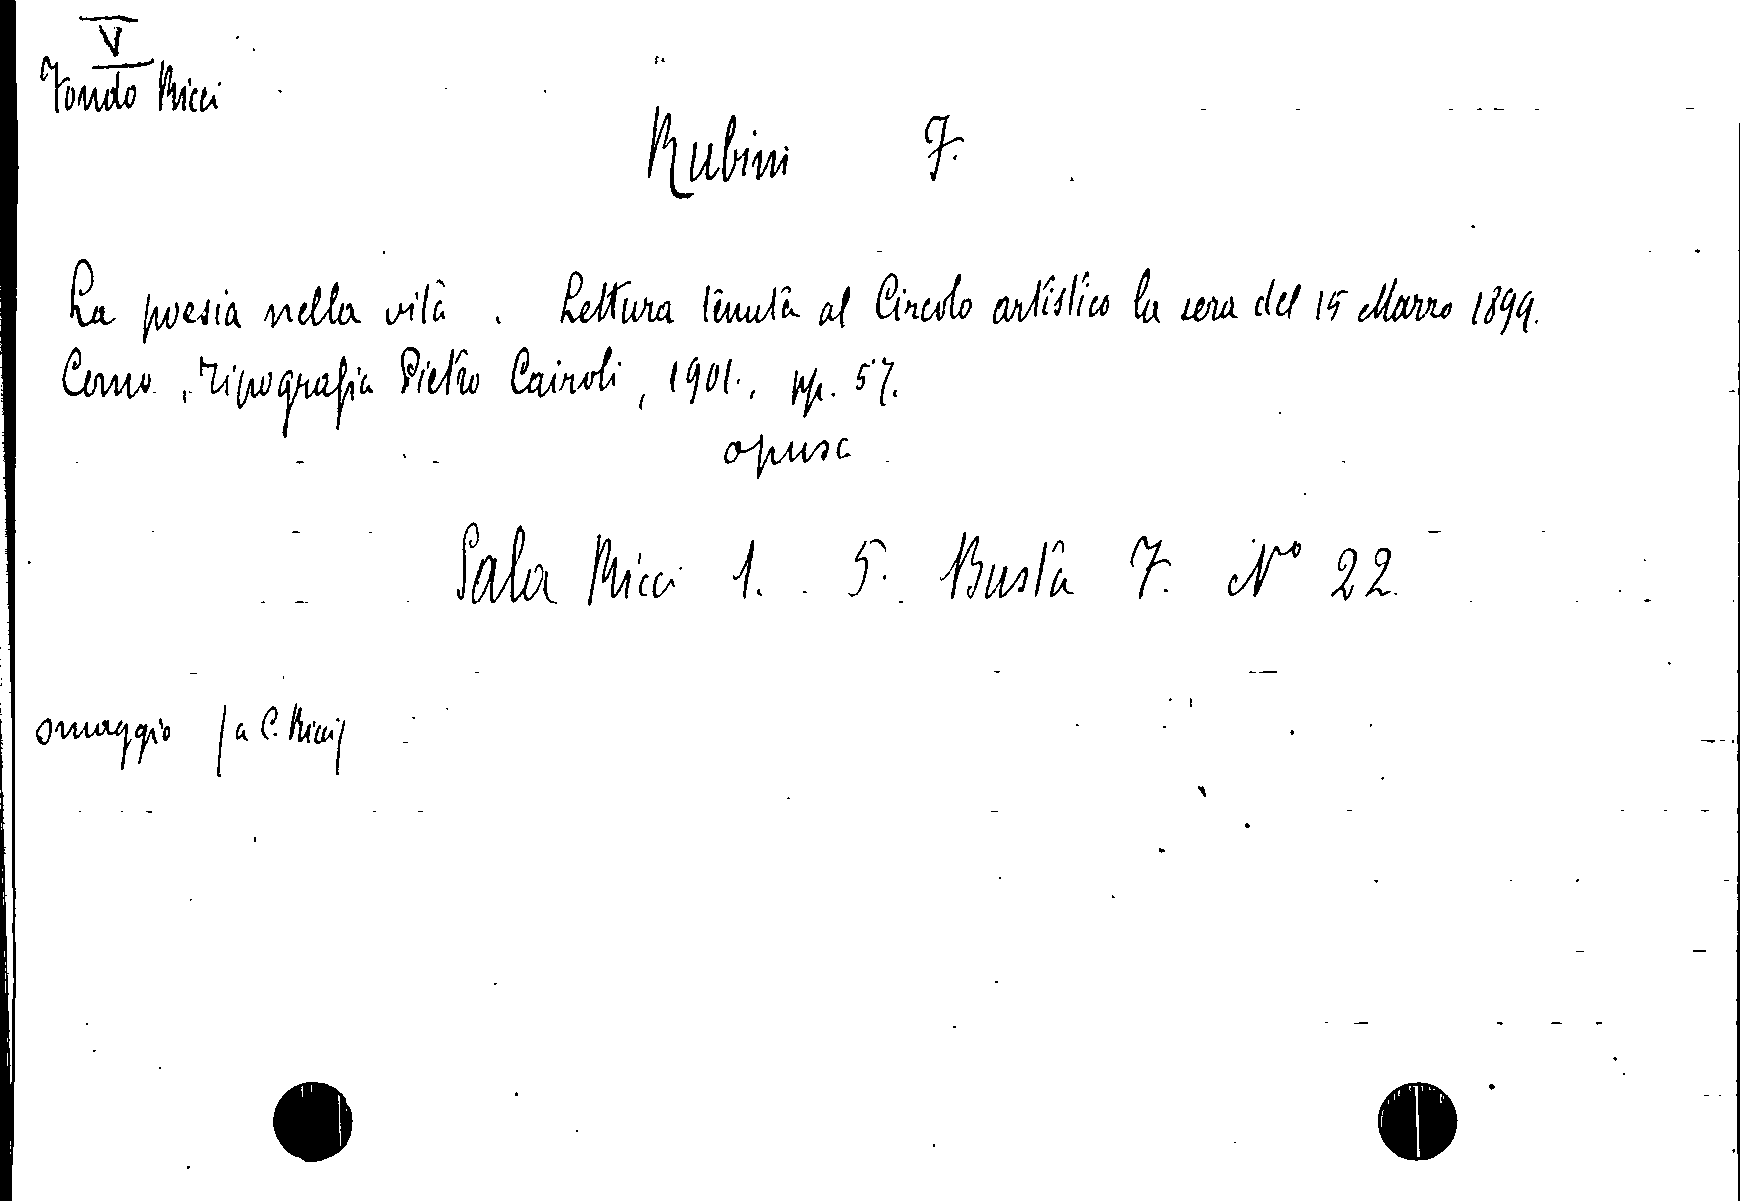 V
Fondo Ricci
Rubini F.
La poesia nella vita. Lettura tenuta al Circolo artistico la sera del 15 Marzo 1899.
Como, Tipografia Pietro Cairoli, 1901., pp. 57.
opusc
Sala Ricci 1. 5. Busta 7. Nº 22
omaggio (a C. Ricci)